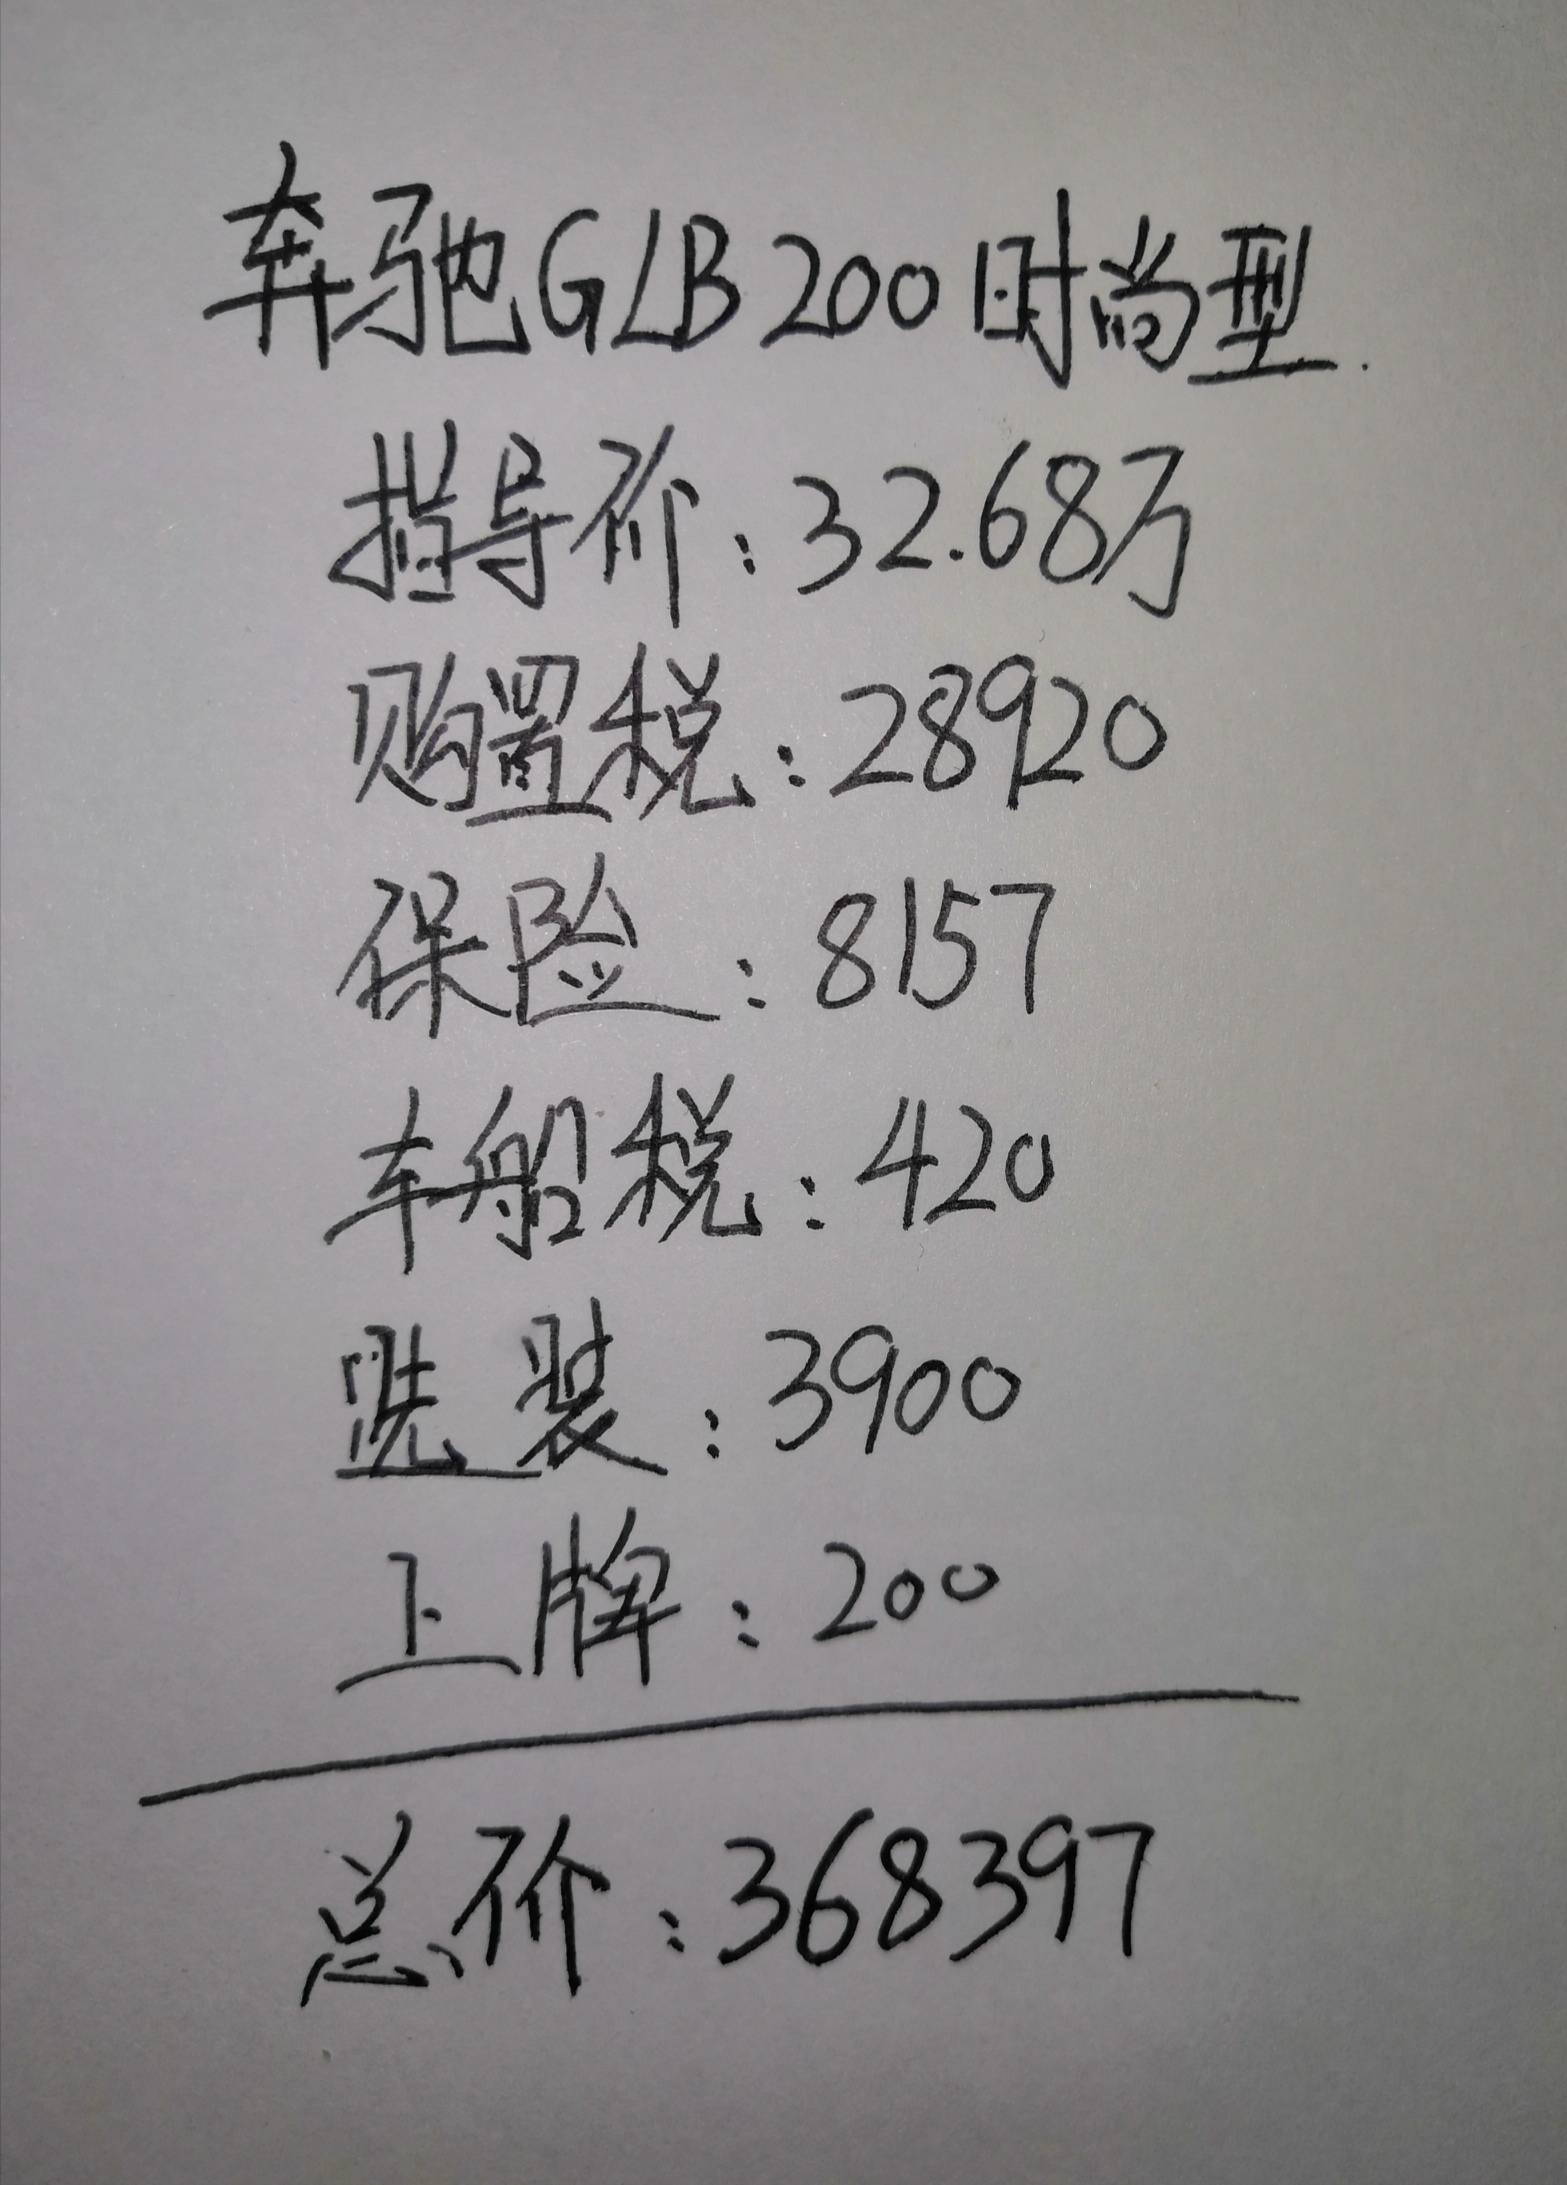 奔驰GLB200时尚型.
指导价:32.68万
购置税:28920
保险:8157
车船税:420
选装:3900
上牌:200
总价:368397